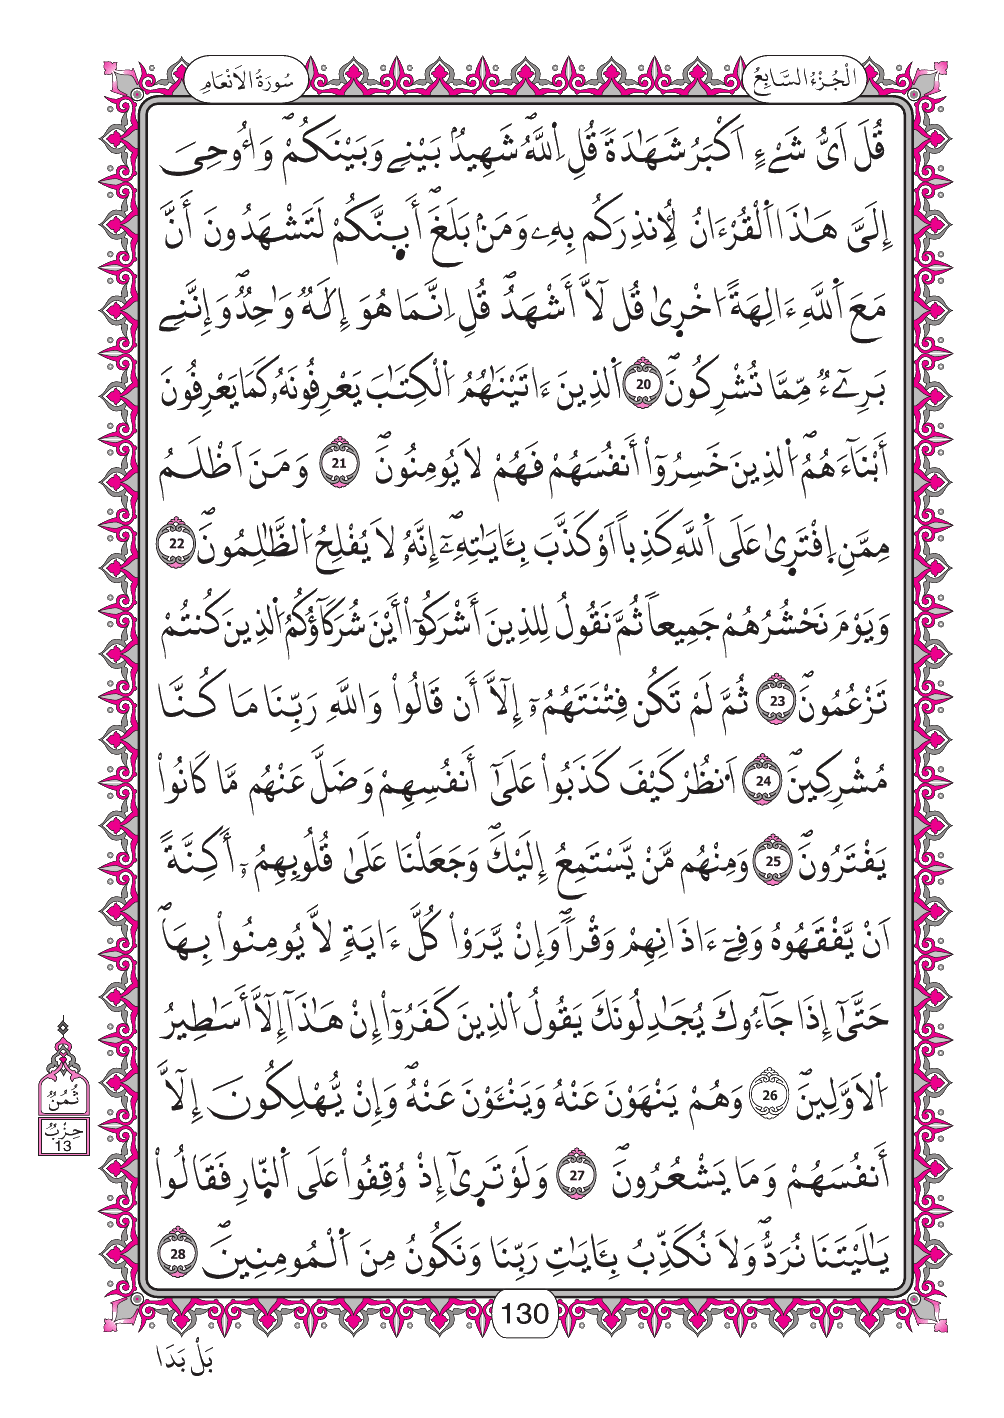 الْجُزْءُ السَّابِعُ
سُورَةُ الْاَنْعَامِ
قُلَ اَيُّ شَےْءٍ اَكْبَرُ شَهَٰدَةٗ قُلِ اِ۬للَّهُ شَهِيدُۢ بَيْنِے وَبَيْنَكُمْۖ وَأُوحِيَ
إِلَيَّ هَٰذَا اَ۬لْقُرْءَانُ لِأُنذِرَكُم بِهِۦ وَمَنۢ بَلَغَۖ أَئِنَّكُمْ لَتَشْهَدُونَ أَنَّ
مَعَ اَ۬للَّهِ ءَالِهَةً اُخْر۪ىٰ قُل لَّآ أَشْهَدُۖ قُلِ اِنَّمَا هُوَ إِلَٰهٞ وَٰحِدٞ وَإِنَّنِے
بَرِےٓءٞ مِّمَّا تُشْرِكُونَۖ 20 اَ۬لذِينَ ءَاتَيْنَٰهُمُ اُ۬لْكِتَٰبَ يَعْرِفُونَهُۥ كَمَا يَعْرِفُونَ
أَبْنَآءَهُمُۖ اُ۬لذِينَ خَسِرُوٓاْ أَنفُسَهُمْ فَهُمْ لَا يُومِنُونَۖ 21 وَمَنَ اَظْلَمُ
مِمَّنِ اِ۪فْتَر۪ىٰ عَلَى اَ۬للَّهِ كَذِباً اَوْ كَذَّبَ بِـَٔايَٰتِهِۦٓۖ إِنَّهُۥ لَا يُفْلِحُ اُ۬لظَّٰلِمُونَۖ 22
وَيَوْمَ نَحْشُرُهُمْ جَمِيعاٗ ثُمَّ نَقُولُ لِلذِينَ أَشْرَكُوٓاْ أَيْنَ شُرَكَآؤُكُمُ اُ۬لذِينَ كُنتُمْ
تَزْعُمُونَۖ 23 ثُمَّ لَمْ تَكُن فِتْنَتَهُمُۥٓ إِلَّآ أَن قَالُواْ وَاللَّهِ رَبِّنَا مَا كُنَّا
مُشْرِكِينَۖ 24 اَ۟نظُرْ كَيْفَ كَذَبُواْ عَلَىٰٓ أَنفُسِهِمْ وَضَلَّ عَنْهُم مَّا كَانُواْ
يَفْتَرُونَۖ 25 وَمِنْهُم مَّنْ يَّسْتَمِعُ إِلَيْكَۖ وَجَعَلْنَا عَلَىٰ قُلُوبِهِمُۥٓ أَكِنَّةً
اَنْ يَّفْقَهُوهُ وَفِےٓ ءَاذَانِهِمْ وَقْراٗۖ وَإِنْ يَّرَوْاْ كُلَّ ءَايَةٖ لَّا يُومِنُواْ بِهَاۖ
حَتَّىٰٓ إِذَا جَآءُوكَ يُجَٰدِلُونَكَ يَقُولُ اُ۬لذِينَ كَفَرُوٓاْ إِنْ هَٰذَآ إِلَّآ أَسَٰطِيرُ
اُ۬لَاوَّلِينَۖ 26 وَهُمْ يَنْهَوْنَ عَنْهُ وَيَنْـَٔوْنَ عَنْهُۖ وَإِنْ يُّهْلِكُونَ إِلَّآ
أَنفُسَهُمْ وَمَا يَشْعُرُونَۖ 27 وَلَوْ تَر۪ىٰٓ إِذْ وُقِفُواْ عَلَى اَ۬لنّ۪ارِ فَقَالُواْ
يَٰلَيْتَنَا نُرَدُّۖ وَلَا نُكَذِّبُ بِـَٔايَٰتِ رَبِّنَا وَنَكُونُ مِنَ اَ۬لْمُومِنِينَۖ 28
ثُمُنُ
حِزْبٌ
13
130
بَلْ بَدَا